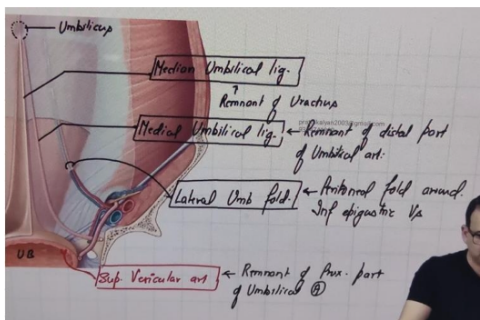 Umbilicus
Median Umbilical lig.
Remnant of Urachus
Medial Umbilical lig.
← Remnant of distal part
of Umbilical art.
Lateral Umb fold.
← Peritoneal fold around
Inf epigastric V/s
UB
Sup Vesicular art
← Remnant of Prox. part
of Umbilical Ⓐ